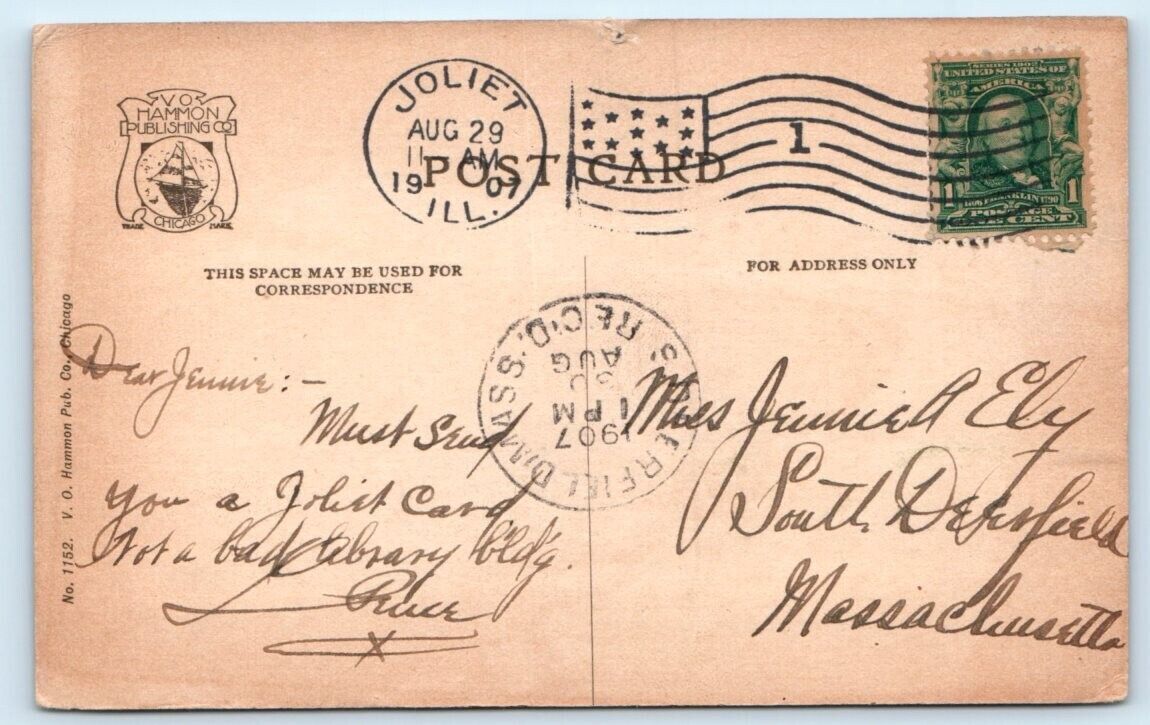 V.O.
HAMMON
PUBLISHING CO
CHICAGO
TRADE MARK
JOLIET
AUG 29
11 AM
1907
ILL.
1
POST CARD
SERIES 1902
UNITED STATES OF
AMERICA
1 1
FRANKLIN 1790
POSTAGE
ONE CENT
THIS SPACE MAY BE USED FOR
CORRESPONDENCE
FOR ADDRESS ONLY
No. 1152. V. O. Hammon Pub. Co., Chicago
S. DEERFIELD, MASS. REC'D.
AUG
1 PM
1907
Dear Jennie:-
Must Send
You a Joliet Card
Not a bad Library bldg.
X
Miss Jennie A Ely
South Deerfield
Massachusetts